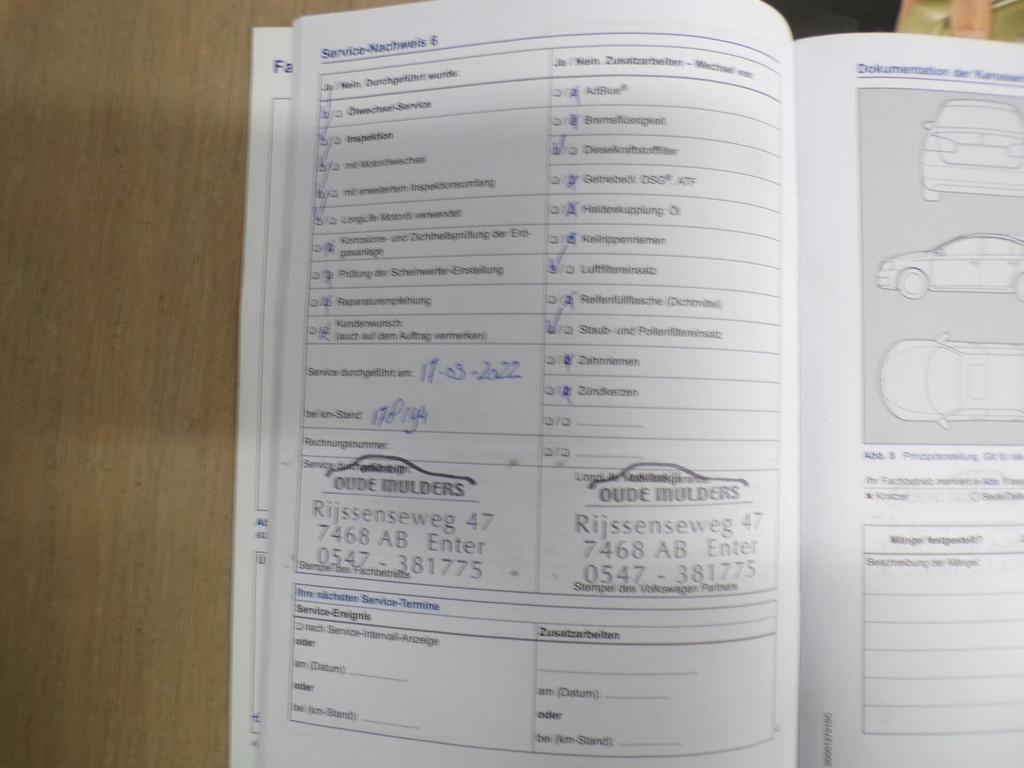 Service-Nachweis 6
Ja / Nein Durchgeführt wurde:
Ölwechsel-Service
Inspektion
mit Motorölwechsel
mit erweitertem Inspektionsumfang
LongLife Motoröl verwendet
Korrosions- und Dichtheitsprüfung der Erd-
gasanlage
Prüfung der Scheinwerfer-Einstellung
Reparaturempfehlung
Kundenwunsch
(auch auf dem Auftrag vermerken)
Service durchgeführt am: 17-03-2022
bei km-Stand: 178194
Rechnungsnummer:
OUDE MULDERS
Rijssenseweg 47
7468 AB Enter
0547 - 381775
Stempel des Fachbetriebs
Ja / Nein Zusatzarbeiten – Wechsel von:
AdBlue®
Bremsflüssigkeit
Dieselkraftstofffilter
Getriebeöl: DSG®/ATF
Haldexkupplung: Öl
Keilrippenriemen
Luftfiltereinsatz
Reifenfüllflasche (Dichtmittel)
Staub- und Pollenfiltereinsatz
Zahnriemen
Zündkerzen
OUDE MULDERS
Rijssenseweg 47
7468 AB Enter
0547 - 381775
Stempel des Volkswagen Partners
Ihre nächsten Service-Termine
Service-Ereignis
nach Service-Intervall-Anzeige
oder
am (Datum):
oder
bei (km-Stand):
Zusatzarbeiten
am (Datum):
oder
bei (km-Stand):
Fa
Dokumentation der
Abb. 8 Prinzipdarstellung: Gilt für
Ihr Fachbetrieb markiert in Abb.
Kratzer
Mängel festgestellt?
Beschreibung der Mängel: